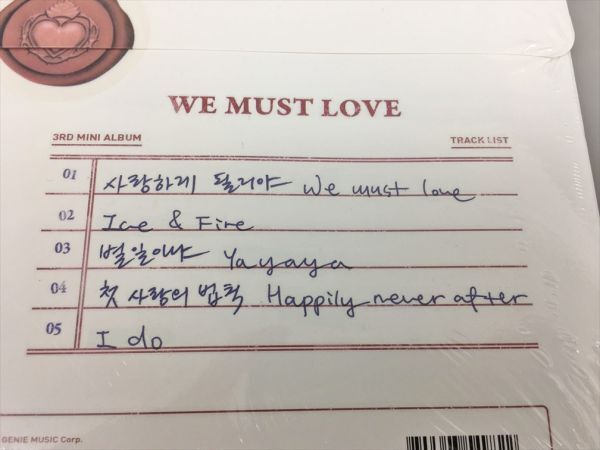 WE MUST LOVE
3RD MINI ALBUM
TRACK LIST
01 사랑하게 될 거야 We must love
02 Ice & Fire
03 별일이야 Yayaya
04 첫사랑의 법칙 Happily never after
05 I do
GENIE MUSIC Corp.